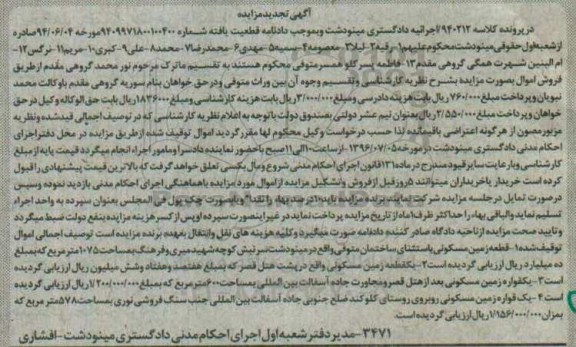 آگهی تجدید مزایده
در پرونده کلاسه ۹۴۰۲۱۲/اجرائیه دادگستری مینودشت و بموجب دادنامه قطعیت یافته شماره ۹۴۰۹۹۷۱۸۰۰۱۰۰۴۰۰ مورخه ۹۴/۰۶/۰۴ صادره
از شعبه اول حقوقی مینودشت محکوم علیهم ۱-رقیه ۲-لیلا ۳-معصومه ۴-سمیه ۵-مهدی ۶-محمدرضا ۷-محمد ۸-علی ۹-کبری ۱۰-مریم ۱۱-نرگس ۱۲-
ام البنین شهرت همگی گروهی مقدم ۱۳-فاطمه سرکلو همسر متوفی محکوم هستند به تقسیم ماترک مرحوم نور محمد گروهی مقدم از طریق
فروش اموال بصورت مزایده بشرح نظریه کارشناسی و تقسیم وجوه آن بین وراث متوفی و در حق خواهان بنام سوریه گروهی مقدم با وکالت محمد
نبویان و پرداخت مبلغ ۷۶۰/۰۰۰ ریال بابت هزینه دادرسی و مبلغ ۳/۰۰۰/۰۰۰ ریال بابت هزینه کارشناسی و مبلغ ۱۸۳۶۰۰۰ ریال بابت حق الوکاله وکیل در حق
خواهان و پرداخت مبلغ ۲/۵۵۰/۰۰۰ ریال بعنوان نیم عشر دولتی بصندوق دولت با توجه به اعلام نظریه کارشناسی که در توصیف اجمالی قید شده و نظریه
مزبور مصون از هرگونه اعتراضی باقیمانده لذا حسب درخواست وکیل محکوم لها مقرر گردید اموال توقیف شده از طریق مزایده در محل دفتر اجرای
احکام مدنی دادگستری مینودشت در مورخه ۱۳۹۶/۰۷/۰۵ از ساعت ۱۰ الی ۱۱ صبح با حضور نماینده دادسرا و مامور اجراء انجام میگردد قیمت پایه از مبلغ
کارشناسی و با رعایت سایر قیود مندرج در ماده ۱۳۱ قانون اجرای احکام مدنی شروع و مال بکسی تعلق خواهد گرفت که بالاترین قیمت پیشنهادی را قبول
کرده است خریدار یا خریداران میتوانند ۵ روز قبل از فروش و تشکیل مزایده از اموال مورد مزایده با هماهنگی اجرای احکام مدنی بازدید نموده و سپس
در صورت تمایل در جلسه مزایده شرکت نمایند برنده مزایده باید ۱۰ درصد بهاء را نقدا و یا بصورت چک پول فی المجلس بعنوان سپرده به واحد اجراء
تسلیم نماید و الباقی بهاء را حداکثر ظرف ۱ ماه از تاریخ مزایده پرداخت نماید در غیر اینصورت سپرده او پس از کسر هزینه مزایده بنفع دولت ضبط میگردد
و تایید صحت مزایده از ناحیه دادگاه صادر کننده دادنامه صورت میگیرد و کلیه هزینه های نقل و انتقال بعهده برنده مزایده است توصیف اجمالی اموال
توقیف شده ۱-قطعه زمین مسکونی باستثنای ساختمان متوفی واقع در مینودشت سر نبش کوچه شهید میری و فرهنگ بمساحت ۱۰۷۵ متر مربع که بمبلغ
ده میلیارد ریال ارزیابی گردیده است ۲-یکقطعه زمین مسکونی واقع در پشت هتل قصر که بمبلغ هفتصد و هفتاد و شش میلیون ریال ارزیابی گردیده
است ۳-یکقواره زمین مسکونی بعد از هتل قصر و مجاورت جاده آسفالت بین المللی بمساحت ۶۰۰ متر مربع که بمبلغ ۱/۲۰۰/۰۰۰/۰۰۰ ریال ارزیابی گردیده
است ۴-یک قواره زمین مسکونی روبروی روستای کلوکند ضلع جنوبی جاده آسفالت بین المللی جنب سنگ فروشی نوری بمساحت ۵۷۸ متر مربع که
بمیزان ۱/۱۵۶/۰۰۰/۰۰۰ ریال ارزیابی گردیده است.
۳۴۷۱-مدیر دفتر شعبه اول اجرای احکام مدنی دادگستری مینودشت-افشاری